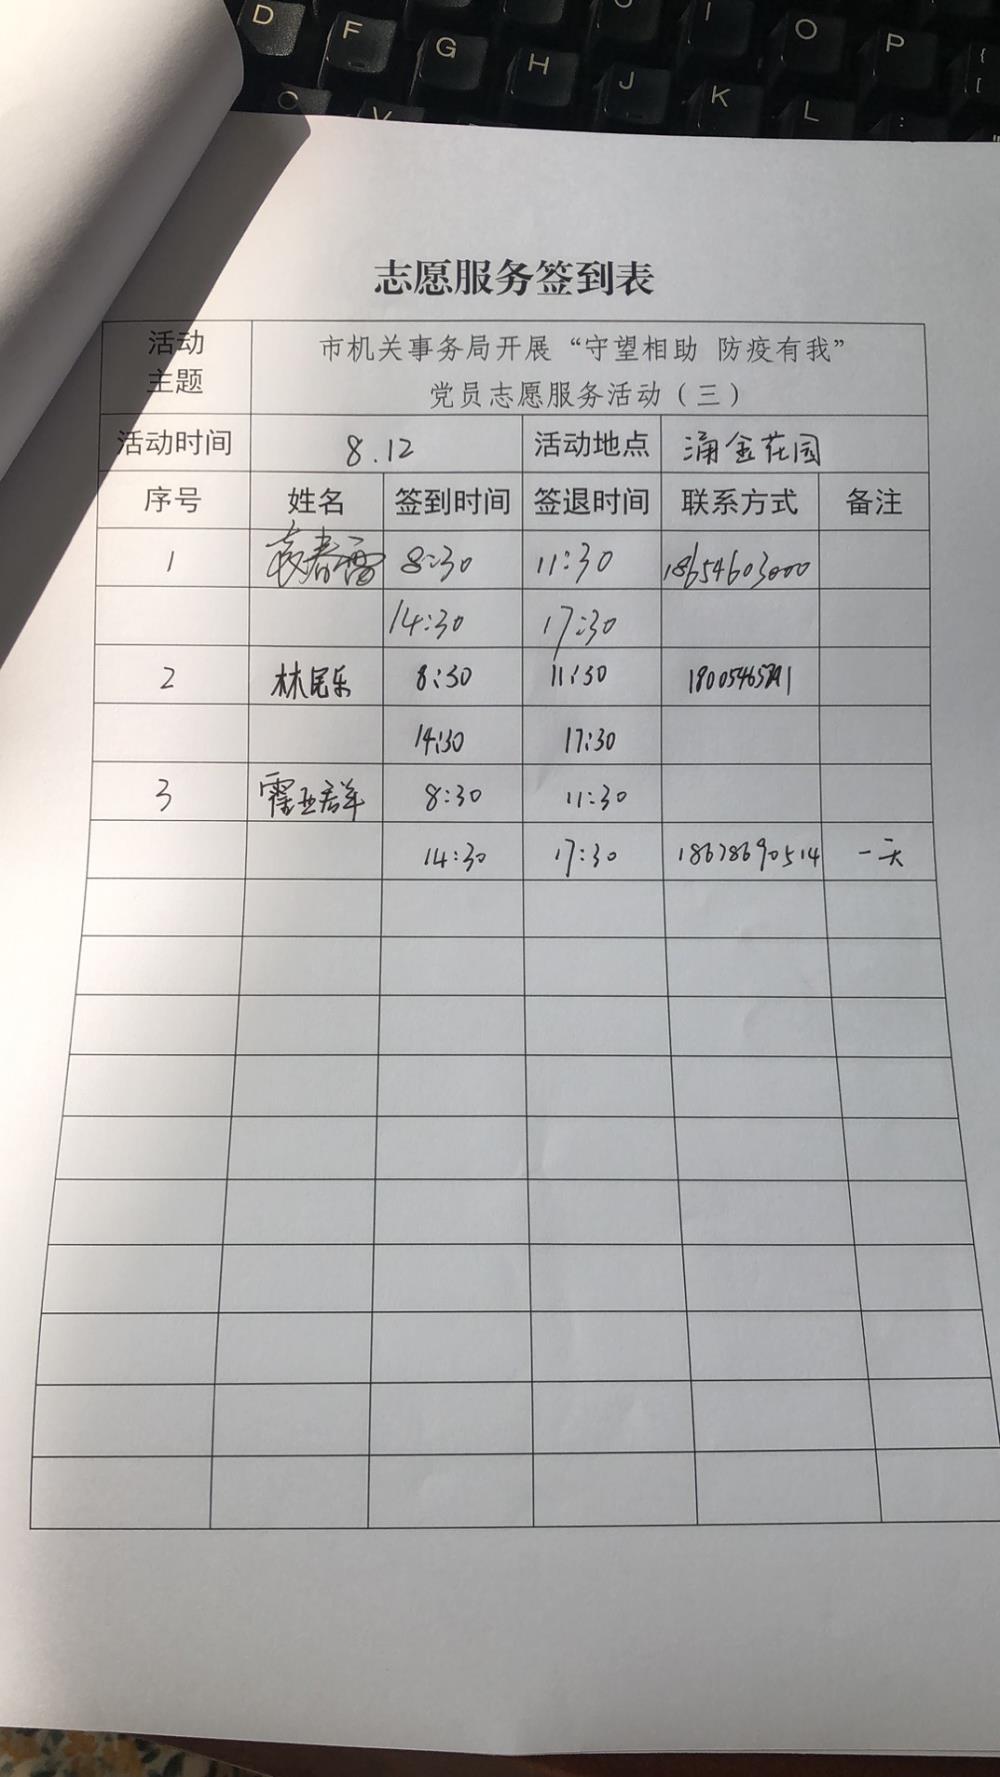 D F G H J K L I O P
志愿服务签到表
活动主题 市机关事务局开展“守望相助 防疫有我”
党员志愿服务活动（三）
活动时间 8.12 活动地点 涌金花园
序号 姓名 签到时间 签退时间 联系方式 备注
1 袁春雷 8:30 11:30 18654603000
14:30 17:30
2 林民乐 8:30 11:30
14:30 17:30
3 霍亚群 8:30 11:30
14:30 17:30 18678690514 一天